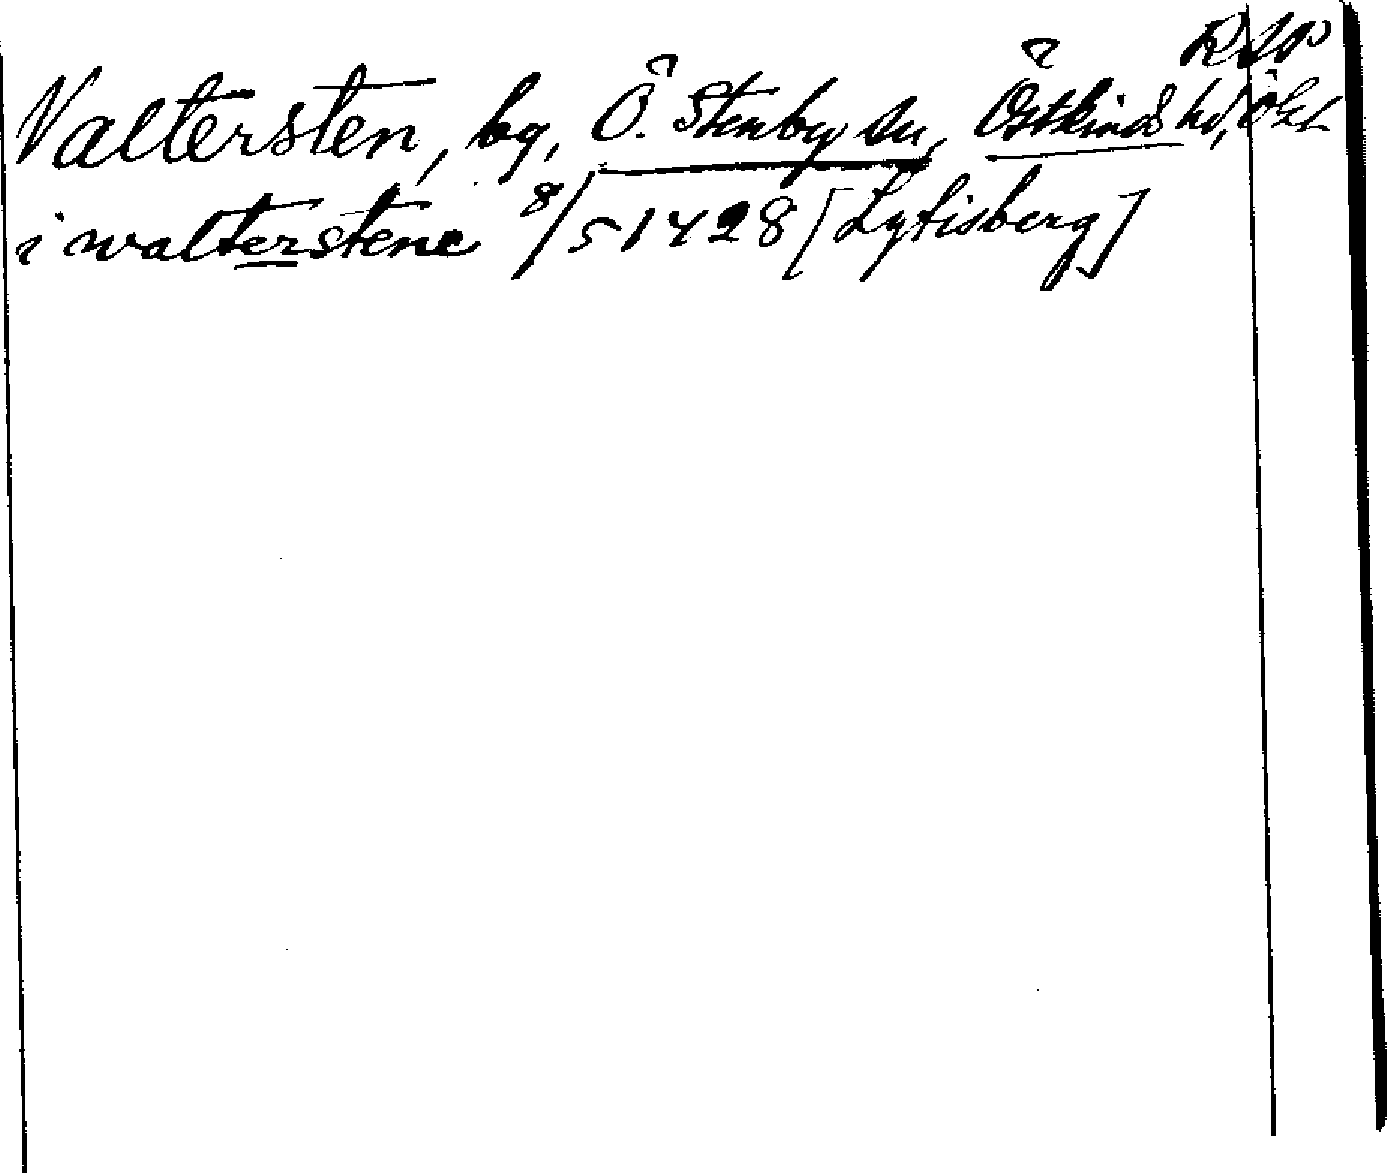 RAP
Valtersten, by, Ö. Stenby sn, Östkinds hd, Ögl
i walterstene 8/5 1428 [Lytisberg]